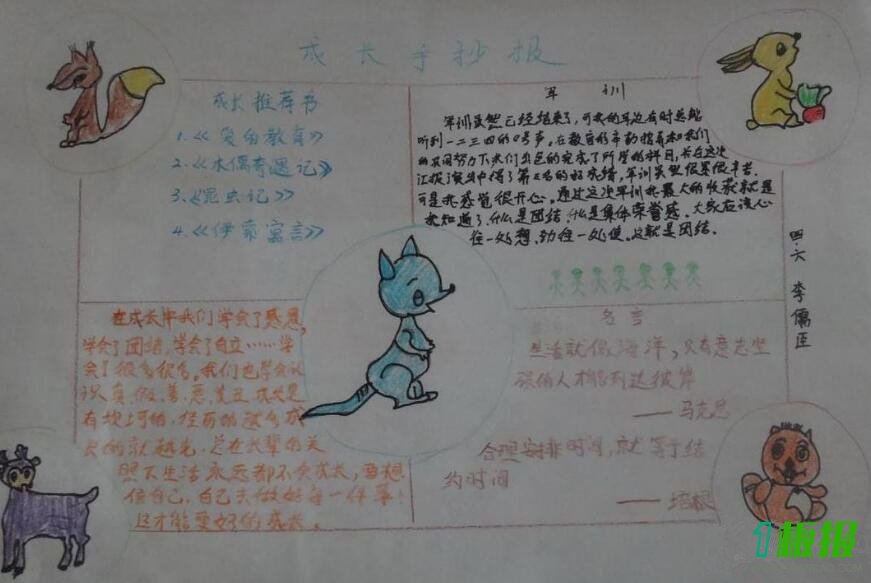 成长手抄报
成长推荐书
1.《爱的教育》
2.《木偶奇遇记》
3.《昆虫记》
4.《伊索寓言》
军训
军训虽然已经结束了，可我的耳边有时总能
听到一二三四的口号声。在教官的辛勤指导和我们
的共同努力下我们出色的完成了所有的科目，并在这次
汇报演出中得了第名的好成绩，军训虽然很累很辛苦，
可是我感觉很开心。通过这次军训我最大的收获就是
我知道了，什么是团结，什么是集体荣誉感。大家应该心
往一处想，劲往一处使。这就是团结。
四.六 李儒臣
在成长中我们学会了感恩，
学会了团结，学会了自立……学
会了很多很多。我们也学会认
识真、假、善、恶、美、丑。成长是
有坎坷的，经历的越多成
长的就越光，总在长辈的关
照下生活永远都不会成长，要相
信自己，自己去做好每一件事！
这才能更好的成长。
名言
生活就像海洋，只有意志坚
强的人才能到达彼岸
——马克思
合理安排时间，就等于结
约时间
——培根
1板报